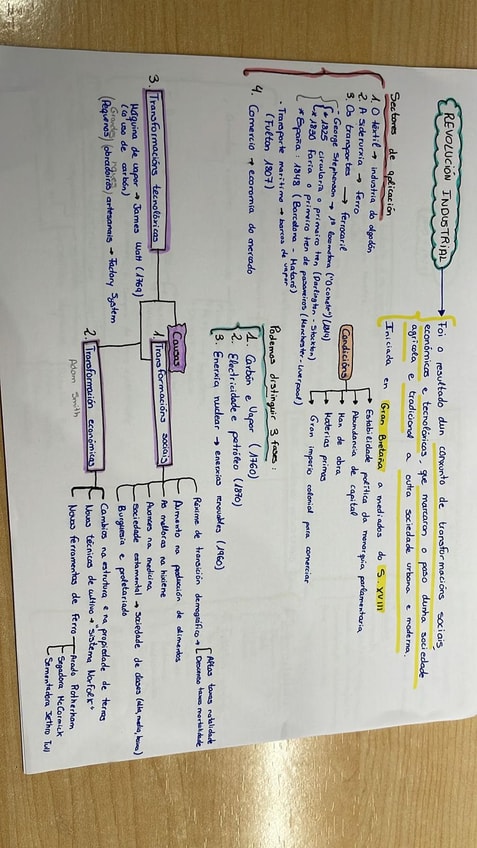 REVOLUCIÓN INDUSTRIAL
Foi o resultado dun conxunto de transformacións sociais
económicas e tecnolóxicas, que marcaron o paso dunha sociedade
agrícola e tradicional a outra sociedade urbana e moderna.
Iniciada en Gran Bretaña a mediados do S. XVIII
Condicións
Estabilidade política da monarquía parlamentaria
Abundancia de capital
Man de obra
Materias primas
Gran imperio colonial para comerciar
Sectores de aplicación
1. O téxtil → industria do algodón
2. A siderurxia → ferro
3. Os transportes → ferrocarril
- George Stephenson → 1ª locomotora (1814)
* 1825 circulará o primeiro tren (Darlington - Stockton)
* 1830 Faría o primeiro tren de pasaxeiros (Manchester - Liverpool)
* España: 1848 (Barcelona - Mataró)
- Transporte marítimo → barcos de vapor
(Fulton 1807)
4. Comercio → economía de mercado
Podemos distinguir 3 fases:
1. Carbón e Vapor (1760)
2. Electricidade e petróleo (1870)
3. Enerxía nuclear → enerxías renovables (1960)
Causas
1. Transformacións sociais
Réxime de transición demográfico →
Altas taxas natalidade
Descenso taxas mortalidade
Aumento na produción de alimentos
As melloras na hixiene
Avances na medicina
Sociedade estamental → Sociedade de clases (alta, media, baixa)
Burguesía e proletariado
2. Transformacións económicas
Adam Smith
Cambios na estrutura e na propiedade de terras
Novas técnicas de cultivo → "Sistema Norfolk"
Novas ferramentas de ferro
Arado Rotherham
Segadora McCormick
Sementadora Jethro Tull
3. Transformacións tecnolóxicas
Máquina de vapor → James Watt (1769)
(a uso de carbón)
(Pequenos) obradoiros artesanais → Factory System